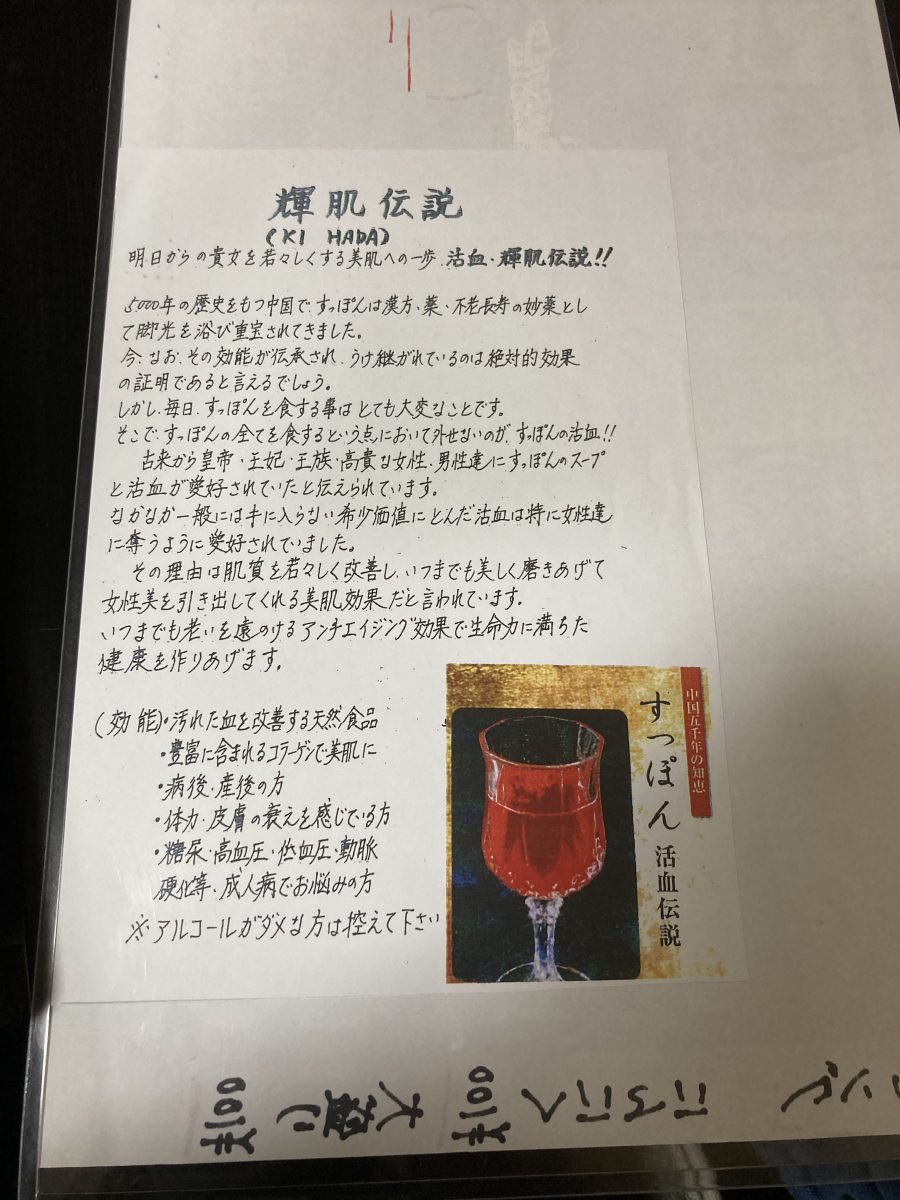 輝肌伝説
(KI HADA)
明日からの貴女を若々しくする美肌への一歩、活血・輝肌伝説!!
5000年の歴史をもつ中国で、すっぽんは漢方・薬・不老長寿の妙薬とし
て脚光を浴び重宝されてきました。
今、なお、その効能が伝承され、うけ継がれているのは絶対的効果
の証明であると言えるでしょう。
しかし、毎日、すっぽんを食する事はとても大変なことです。
そこで、すっぽんの全てを食するという点において外せないのが、すっぽんの活血!!
古来から皇帝・王妃・王族・高貴な女性、男性達にすっぽんのスープ
と活血が愛好されていたと伝えられています。
なかなか一般には手に入らない希少価値にとんだ活血は特に女性達
に奪うように愛好されていました。
その理由は肌質を若々しく改善し、いつまでも美しく磨きあげて
女性美を引き出してくれる美肌効果だと言われています。
いつまでも老いを遠のけるアンチエイジング効果で生命力に満ちた
健康を作りあげます。
(効能)・汚れた血を改善する天然食品
・豊富に含まれるコラーゲンで美肌に
・病後・産後の方
・体力・皮膚の衰えを感じている方
・糖尿・高血圧・低血圧・動脈
硬化等・成人病でお悩みの方
※アルコールがダメな方は控えて下さい
中国五千年の知恵
すっぽん活血伝説
大盛り
100
100